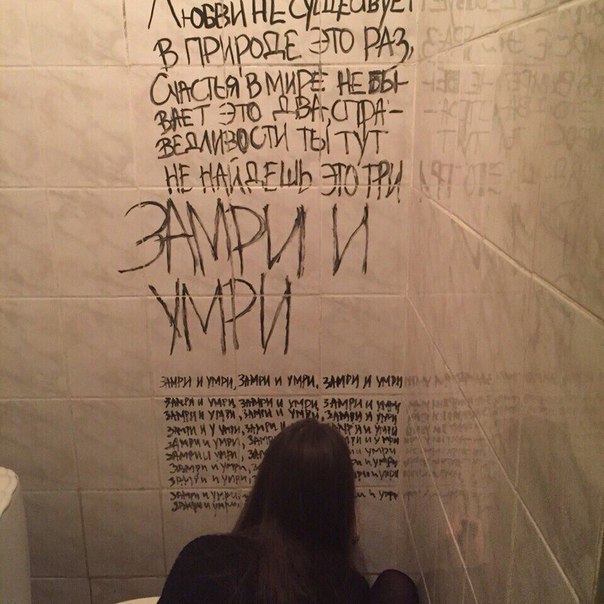 ЛЮБВИ НЕ СУЩЕСТВУЕТ
В ПРИРОДЕ ЭТО РАЗ,
СЧАСТЬЯ В МИРЕ НЕ БЫ-
ВАЕТ ЭТО ДВА, СПРА-
ВЕДЛИВОСТИ ТЫ ТУТ
НЕ НАЙДЕШЬ ЭТО ТРИ
ЗАМРИ И
УМРИ
ЗАМРИ И УМРИ, ЗАМРИ И УМРИ, ЗАМРИ И УМРИ
ЗАМРИ И УМРИ, ЗАМРИ И УМРИ, ЗАМРИ И УМРИ
ЗАМРИ И УМРИ, ЗАМРИ И УМРИ, ЗАМРИ И УМРИ
ЗАМРИ И УМРИ, ЗАМРИ И УМРИ
ЗАМРИ И УМРИ, ЗАМРИ И УМРИ
ЗАМРИ И УМРИ, И УМРИ
ЗАМРИ И УМРИ, И УМРИ
ЗАМРИ И УМРИ, И УМРИ
ЗАМРИ И УМРИ, И УМРИ
ЗАМРИ И УМРИ